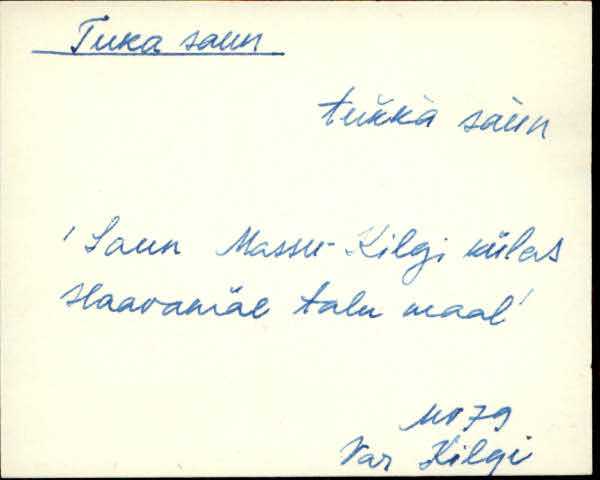 Tuka saun
tukka saun
'Saun Massu-Kilgi külas
Haavamäe talu maal'
79
Var Kilgi